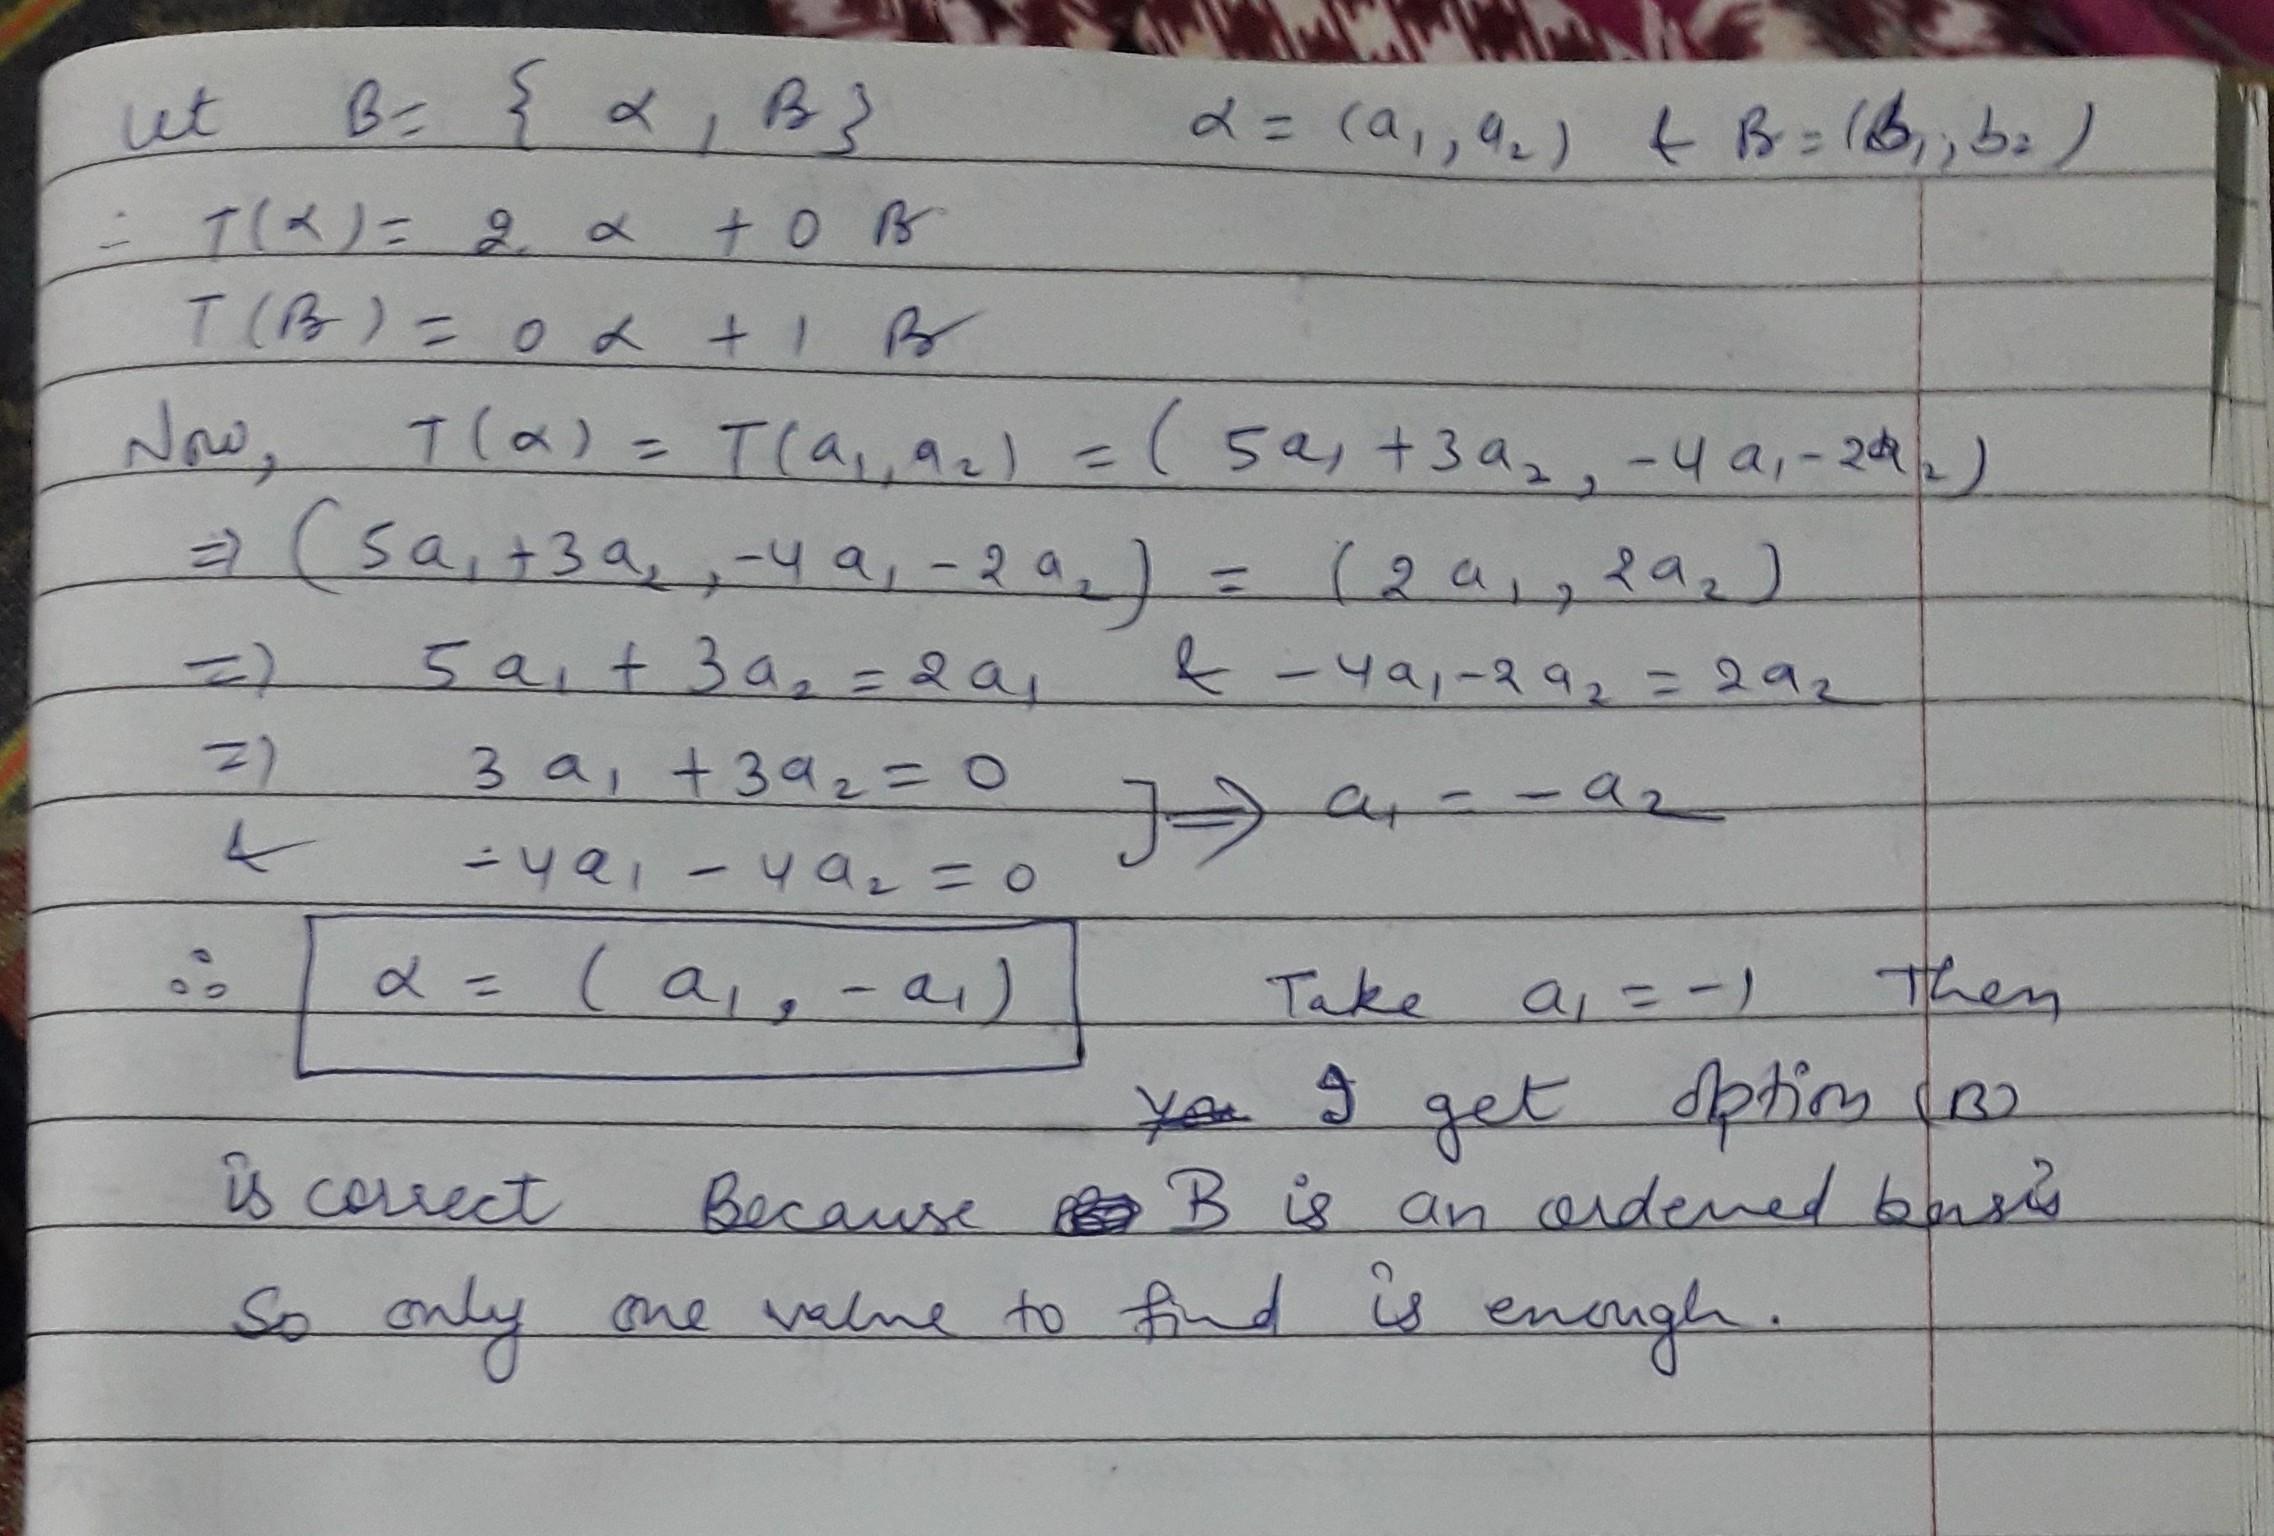 Let B = { α , β } α = (a₁, a₂) & β = (b₁, b₂)
∴ T(α) = 2 α + 0 β
T(β) = 0 α + 1 β
Now, T(α) = T(a₁, a₂) = ( 5a₁ + 3a₂, -4a₁ - 2a₂ )
⇒ ( 5a₁ + 3a₂, -4a₁ - 2a₂ ) = ( 2a₁, 2a₂ )
⇒ 5a₁ + 3a₂ = 2a₁ & -4a₁ - 2a₂ = 2a₂
⇒ 3a₁ + 3a₂ = 0 ] ⇒ a₁ = -a₂
& -4a₁ - 4a₂ = 0
∴ α = ( a₁, -a₁ ) Take a₁ = -1 Then
I get option (B)
is correct Because B is an ordered basis
So only one value to find is enough.